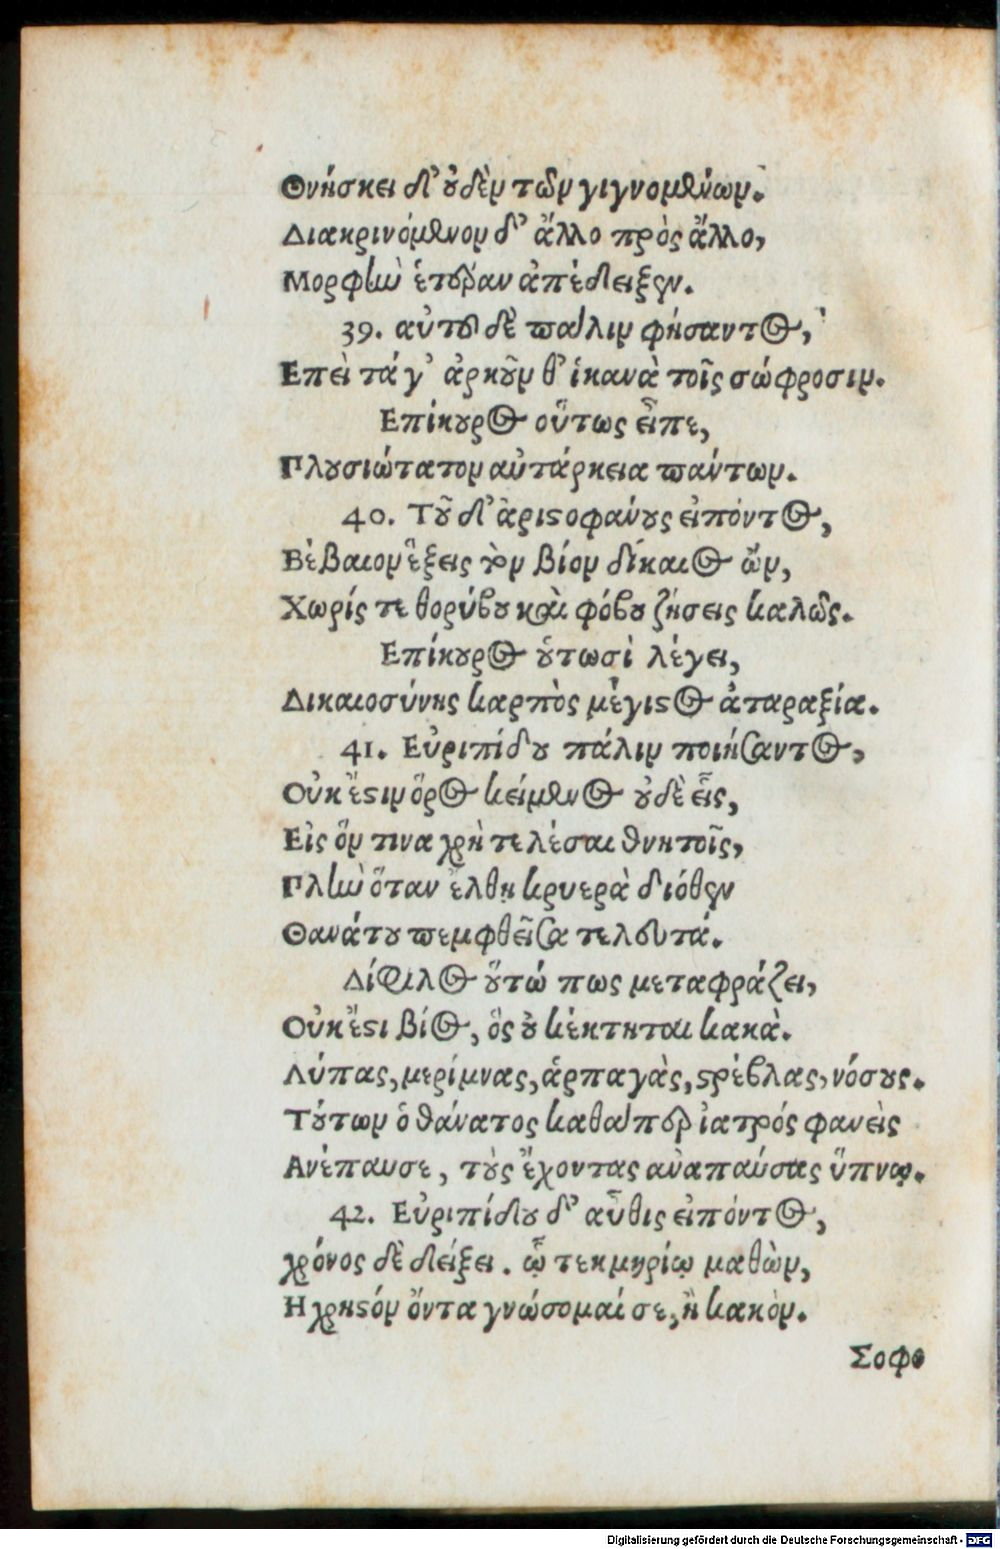 Θνήσκει δ' οὐδὲν τῶν γιγνομένων.
Διακρινόμενον δ' ἄλλο πρὸς ἄλλο,
Μορφὴν ἑτέραν ἀπέδειξεν.
39. αὐτοῦ δὲ πάλιν φήσαντος,
Επεὶ τά γ' ἀρκοῦν θ' ἱκανὰ τοῖς σώφροσιν.
Επίκουρος οὕτως εἶπε,
Πλουσιώτατον αὐτάρκεια πάντων.
40. Τοῦ δ' ἀριστοφάνους εἰπόντος,
Βέβαιον ἕξεις τὸν βίον δίκαιος ὤν,
Χωρίς τε θορύβου καὶ φόβου ζήσεις καλῶς.
Επίκουρος οὑτωσὶ λέγει,
Δικαιοσύνης καρπὸς μέγιστος ἀταραξία.
41. Εὐριπίδου πάλιν ποιήσαντος,
Οὐκ ἔστιν ὅρος κείμενος οὐδὲ εἷς,
Εἰς ὅν τινα χρὴ τελέσαι θνητοῖς,
Πλὴν ὅταν ἔλθῃ κρυερὰ διόθεν
Θανάτου πεμφθεῖσα τελευτά.
Δίφιλος οὕτώ πως μεταφράζει,
Οὐκ ἔστι βίος, ὃς οὐ κέκτηται κακὰ.
Λύπας, μερίμνας, ἁρπαγὰς, στρέβλας, νόσους.
Τούτων ὁ θάνατος καθάπερ ἰατρός φανεὶς
Ανέπαυσε, τοὺς ἔχοντας ἀναπαύσας ὕπνῳ.
42. Εὐριπίδου δ' αὖθις εἰπόντος,
χρόνος δὲ δείξει. ᾧ τεκμηρίῳ μαθὼν,
Η χρηστόν ὄντα γνώσομαί σε, ἢ κακὸν.
Σοφο
Digitalisierung gefördert durch die Deutsche Forschungsgemeinschaft - DFG